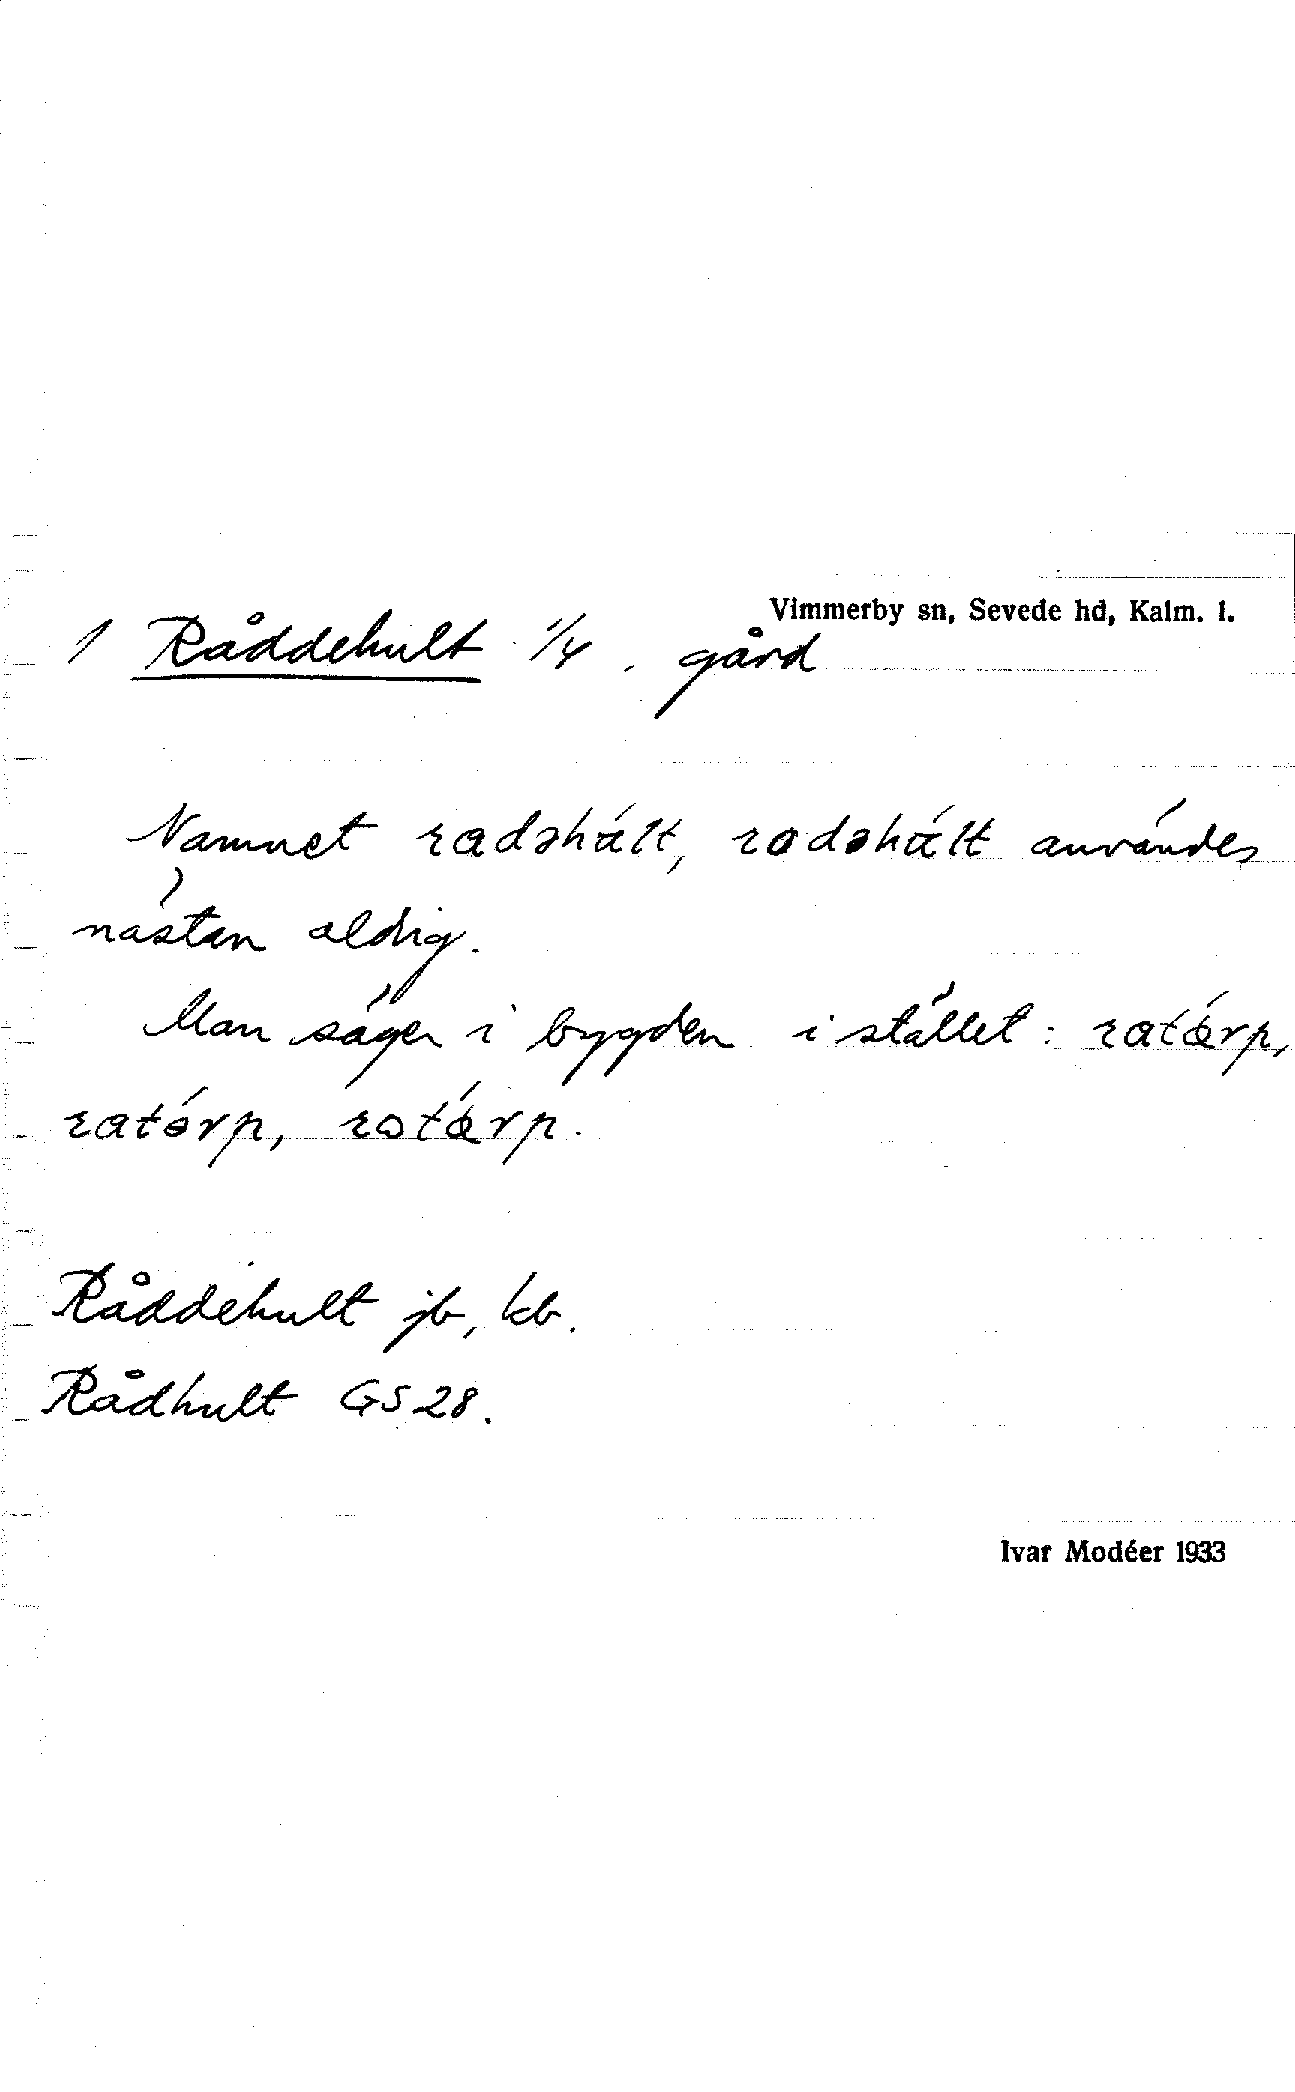 Vimmerby sn, Sevede hd, Kalm. l.
1 Råddehult 1/4. gård
Namnet radəhált, rodəhált användes
nästan aldrig.
Man säger i bygden i stället: ratǿrp,
ratǿrp, rotǿrp.
Råddehult jb, kb.
Rådhult GS 28.
Ivar Modéer 1933